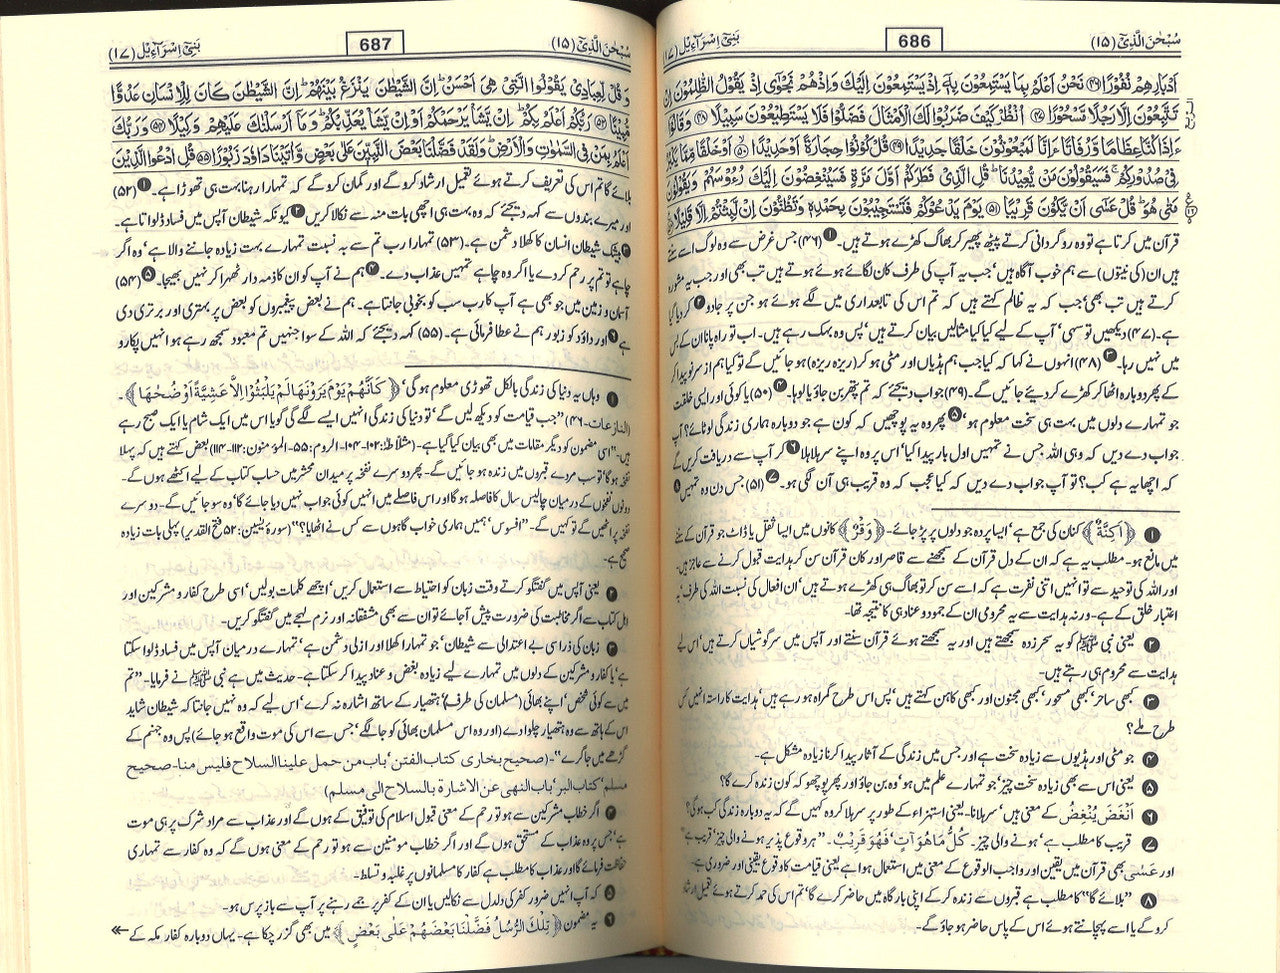 سُبْحٰنَ الَّذِيْٓ (۱۵)
686
بَنِيْٓ اِسْرَآءِيْل (۱۷)
اَدْبَارِهِمْ نُفُوْرًا ﴿۴۶﴾ نَحْنُ اَعْلَمُ بِمَا يَسْتَمِعُوْنَ بِهٖٓ اِذْ يَسْتَمِعُوْنَ اِلَيْكَ وَاِذْ هُمْ نَجْوٰٓى اِذْ يَقُوْلُ الظّٰلِمُوْنَ اِنْ
تَتَّبِعُوْنَ اِلَّا رَجُلًا مَّسْحُوْرًا ﴿۴۷﴾ اُنْظُرْ كَيْفَ ضَرَبُوْا لَكَ الْاَمْثَالَ فَضَلُّوْا فَلَا يَسْتَطِيْعُوْنَ سَبِيْلًا ﴿۴۸﴾ وَقَالُوْٓا
ءَاِذَا كُنَّا عِظَامًا وَّرُفَاتًا ءَاِنَّا لَمَبْعُوْثُوْنَ خَلْقًا جَدِيْدًا ﴿۴۹﴾ قُلْ كُوْنُوْا حِجَارَةً اَوْ حَدِيْدًا ﴿۵۰﴾ اَوْ خَلْقًا مِّمَّا يَكْبُرُ
فِيْ صُدُوْرِكُمْ ۚ فَسَيَقُوْلُوْنَ مَنْ يُّعِيْدُنَا ؕ قُلِ الَّذِيْ فَطَرَكُمْ اَوَّلَ مَرَّةٍ ۚ فَسَيُنْغِضُوْنَ اِلَيْكَ رُءُوْسَهُمْ وَيَقُوْلُوْنَ
مَتٰى هُوَ ؕ قُلْ عَسٰٓى اَنْ يَّكُوْنَ قَرِيْبًا ﴿۵۱﴾ يَوْمَ يَدْعُوْكُمْ فَتَسْتَجِيْبُوْنَ بِحَمْدِهٖ وَتَظُنُّوْنَ اِنْ لَّبِثْتُمْ اِلَّا قَلِيْلًا
قرآن میں کرتا ہے تو وہ روگردانی کرتے پیٹھ پھیر کر بھاگ کھڑے ہوتے ہیں۔ ۱ (۴۶) جس غرض سے وہ لوگ اسے سنتے
ہیں ان (کی نیتوں) سے ہم خوب آگاہ ہیں' جب یہ آپ کی طرف کان لگائے ہوئے ہوتے ہیں تب بھی اور جب یہ مشورہ
کرتے ہیں تب بھی' جب کہ یہ ظالم کہتے ہیں کہ تم اس کی تابعداری میں لگے ہوئے ہو جن پر جادو ۲ کر دیا گیا
ہے۔ (۴۷) دیکھیں تو سہی' آپ کے لیے کیا کیا مثالیں بیان کرتے ہیں' پس وہ بہک رہے ہیں۔ اب تو راہ پانا ان کے بس
میں نہیں رہا۔ ۳ (۴۸) انہوں نے کہا کہ کیا جب ہم ہڈیاں اور مٹی ہو کر (ریزہ ریزہ) ہو جائیں گے تو کیا ہم از سر نو پیدا کر
کے پھر دوبارہ اٹھا کر کھڑے کر دیئے جائیں گے۔ (۴۹) جواب دیجئے کہ تم پتھر بن جاؤ یا لوہا۔ ۴ (۵۰) یا کوئی اور ایسی خلقت
جو تمہارے دلوں میں بہت ہی سخت معلوم ہو' ۵ پھر وہ یہ پوچھیں کہ کون ہے جو دوبارہ ہماری زندگی لوٹائے؟ آپ
جواب دے دیں کہ وہی اللہ جس نے تمہیں اول بار پیدا کیا' اس پر وہ اپنے سر ہلا ہلا ۶ کر آپ سے دریافت کریں گے
کہ اچھا یہ ہے کب؟ تو آپ جواب دے دیں کہ کیا عجب کہ وہ قریب ہی آن لگی ہو۔ ۷ (۵۱) جس دن وہ تمہیں ۸
۱ ﴿اَكِنَّةً﴾ کنان کی جمع ہے' ایسا پردہ جو دلوں پر پڑ جائے۔ ﴿وَقْرٌ﴾ کانوں میں ایسا ثقل یا ڈاٹ جو قرآن کے سننے
میں مانع ہو۔ مطلب یہ ہے کہ ان کے دل قرآن کے سمجھنے سے قاصر اور کان قرآن سن کر ہدایت قبول کرنے سے عاجز ہیں
اور اللہ کی توحید سے تو انہیں اتنی نفرت ہے کہ اسے سن کر تو بھاگ ہی کھڑے ہوتے ہیں' ان افعال کی نسبت اللہ کی طرف' بہ
اعتبار خلق کے ہے۔ ورنہ ہدایت سے یہ محرومی ان کے جمود و عناد ہی کا نتیجہ تھا۔
۲ یعنی نبی ﷺ کو یہ سحر زدہ سمجھتے ہیں اور یہ سمجھتے ہوئے قرآن سنتے اور آپس میں سرگوشیاں کرتے ہیں' اس لیے
ہدایت سے محروم ہی رہتے ہیں۔
۳ کبھی ساحر' کبھی مسحور' کبھی مجنون اور کبھی کاہن کہتے ہیں' پس اس طرح گمراہ ہو رہے ہیں' ہدایت کا راستہ انہیں کس
طرح ملے؟
۴ جو مٹی اور ہڈیوں سے زیادہ سخت ہے اور جس میں زندگی کے آثار پیدا کرنا زیادہ مشکل ہے۔
۵ یعنی اس سے بھی زیادہ سخت چیز' جو تمہارے علم میں ہو' وہ بن جاؤ اور پھر پوچھو کہ کون زندہ کرے گا؟
۶ اَنْغَضَ يُنْغِضُ کے معنی ہیں' سر ہلانا۔ یعنی استہزاء کے طور پر سر ہلا کر وہ کہیں گے کہ یہ دوبارہ زندگی کب ہو گی؟
۷ قریب کا مطلب ہے' ہونے والی چیز۔ كُلُّ مَا هُوَ اٰتٍ' فَهُوَ قَرِيْبٌ۔ "ہر وقوع پذیر ہونے والی چیز' قریب ہے"
اور عَسٰى بھی قرآن میں یقین اور واجب الوقوع کے معنی میں استعمال ہوا ہے یعنی قیامت کا وقوع یقینی اور ضروری ہے۔
۸ "بلائے گا" کا مطلب ہے قبروں سے زندہ کر کے اپنی بارگاہ میں حاضر کرے گا' تم اس کی حمد کرتے ہوئے تعمیل ارشاد
کرو گے یا اسے پہچانتے ہوئے اس کے پاس حاضر ہو جاؤ گے۔
سُبْحٰنَ الَّذِيْٓ (۱۵)
687
بَنِيْٓ اِسْرَآءِيْل (۱۷)
وَقُلْ لِّعِبَادِيْ يَقُوْلُوا الَّتِيْ هِيَ اَحْسَنُ ؕ اِنَّ الشَّيْطٰنَ يَنْزَغُ بَيْنَهُمْ ؕ اِنَّ الشَّيْطٰنَ كَانَ لِلْاِنْسَانِ عَدُوًّا
مُّبِيْنًا ﴿۵۳﴾ رَبُّكُمْ اَعْلَمُ بِكُمْ ؕ اِنْ يَّشَاْ يَرْحَمْكُمْ اَوْ اِنْ يَّشَاْ يُعَذِّبْكُمْ ؕ وَمَآ اَرْسَلْنٰكَ عَلَيْهِمْ وَكِيْلًا ﴿۵۴﴾ وَرَبُّكَ
اَعْلَمُ بِمَنْ فِي السَّمٰوٰتِ وَالْاَرْضِ ؕ وَلَقَدْ فَضَّلْنَا بَعْضَ النَّبِيّٖنَ عَلٰى بَعْضٍ وَّاٰتَيْنَا دَاوٗدَ زَبُوْرًا ﴿۵۵﴾ قُلِ ادْعُوا الَّذِيْنَ
بلائے گا تم اس کی تعریف کرتے ہوئے تعمیل ارشاد کرو گے اور گمان کرو گے کہ تمہارا رہنا بہت ہی تھوڑا ہے۔ ۱ (۵۲)
اور میرے بندوں سے کہہ دیجئے کہ وہ بہت ہی اچھی بات منہ سے نکالا کریں ۲ کیونکہ شیطان آپس میں فساد ڈلواتا ہے۔
۳ بیشک شیطان انسان کا کھلا دشمن ہے۔ (۵۳) تمہارا رب تم سے بہ نسبت تمہارے بہت زیادہ جاننے والا ہے' وہ اگر
چاہے تو تم پر رحم کر دے یا اگر وہ چاہے تمہیں عذاب دے۔ ۴ ہم نے آپ کو ان کا ذمہ دار ٹھہرا کر نہیں بھیجا۔ ۵ (۵۴)
آسمان و زمین میں جو بھی ہے آپ کا رب سب کو بخوبی جانتا ہے۔ ہم نے بعض پیغمبروں کو بعض پر بہتری اور برتری دی
ہے ۶ اور داؤد کو زبور ہم نے عطا فرمائی ہے۔ (۵۵) کہہ دیجئے کہ اللہ کے سوا جنہیں تم معبود سمجھ رہے ہو انہیں پکارو
۱ وہاں یہ دنیا کی زندگی بالکل تھوڑی معلوم ہو گی' ﴿كَاَنَّهُمْ يَوْمَ يَرَوْنَهَا لَمْ يَلْبَثُوْٓا اِلَّا عَشِيَّةً اَوْ ضُحٰهَا﴾۔
(النازعات۔۴۶) "جب قیامت کو دیکھ لیں گے' تو دنیا کی زندگی انہیں ایسے لگے گی گویا اس میں ایک شام یا ایک صبح رہے
ہیں۔" اسی مضمون کو دیگر مقامات میں بھی بیان کیا گیا ہے۔ (مثلاً طہٰ:۱۰۲-۱۰۴۔ الروم:۵۵۔ المؤمنون:۱۱۲-۱۱۴) بعض کہتے ہیں کہ پہلا
نفخہ ہو گا تو سب مردے قبروں میں زندہ ہو جائیں گے۔ پھر دوسرے نفخہ پر میدان محشر میں حساب کتاب کے لیے اکٹھے ہوں گے۔
دونوں نفخوں کے درمیان چالیس سال کا فاصلہ ہو گا اور اس فاصلے میں انہیں کوئی عذاب نہیں دیا جائے گا' وہ سو جائیں گے۔ دوسرے
نفخہ پر اٹھیں گے تو کہیں گے۔ "افسوس' ہمیں ہماری خواب گاہوں سے کس نے اٹھایا؟" (سورۂ یٰسین:۵۲ فتح القدیر) پہلی بات زیادہ
صحیح ہے۔
۲ یعنی آپس میں گفتگو کرتے وقت زبان کو احتیاط سے استعمال کریں' اچھے کلمات بولیں' اسی طرح کفار و مشرکین اور
اہل کتاب سے اگر مخاطبت کی ضرورت پیش آجائے تو ان سے بھی مشفقانہ اور نرم لہجے میں گفتگو کریں۔
۳ زبان کی ذرا سی بے اعتدالی سے شیطان' جو تمہارا کھلا اور ازلی دشمن ہے' تمہارے درمیان آپس میں فساد ڈلوا سکتا
ہے' یا کفار و مشرکین کے دلوں میں تمہارے لیے زیادہ بغض و عناد پیدا کر سکتا ہے۔ حدیث میں ہے نبی ﷺ نے فرمایا۔ "تم
میں سے کوئی شخص' اپنے بھائی (مسلمان کی طرف)' ہتھیار کے ساتھ اشارہ نہ کرے' اس لیے کہ وہ نہیں جانتا کہ شیطان شاید
اس کے ہاتھ سے وہ ہتھیار چلوا دے (اور وہ اس مسلمان بھائی کو جا لگے' جس سے اس کی موت واقع ہو جائے) پس وہ جہنم کے
گڑھے میں جا گرے"۔ (صحیح بخاری' کتاب الفتن' باب من حمل علینا السلاح فلیس منا۔ صحیح
مسلم' کتاب البر' باب النہی عن الاشارۃ بالسلاح الی مسلم)
۴ اگر خطاب مشرکین سے ہو تو رحم کے معنی قبول اسلام کی توفیق کے ہوں گے اور عذاب سے مراد شرک پر ہی موت
ہے' جس پر وہ عذاب کے مستحق ہوں گے اور اگر خطاب مومنین سے ہو تو رحم کے معنی ہوں گے کہ وہ کفار سے تمہاری
حفاظت فرمائے گا اور عذاب کا مطلب ہے کفار کا مسلمانوں پر غلبہ و تسلط۔
۵ کہ آپ انہیں ضرور کفر کی دلدل سے نکالیں یا ان کے کفر پر جمے رہنے پر آپ سے باز پرس ہو۔
۶ یہ مضمون ﴿تِلْكَ الرُّسُلُ فَضَّلْنَا بَعْضَهُمْ عَلٰى بَعْضٍ﴾ میں بھی گزر چکا ہے۔ یہاں دوبارہ کفار مکہ کے